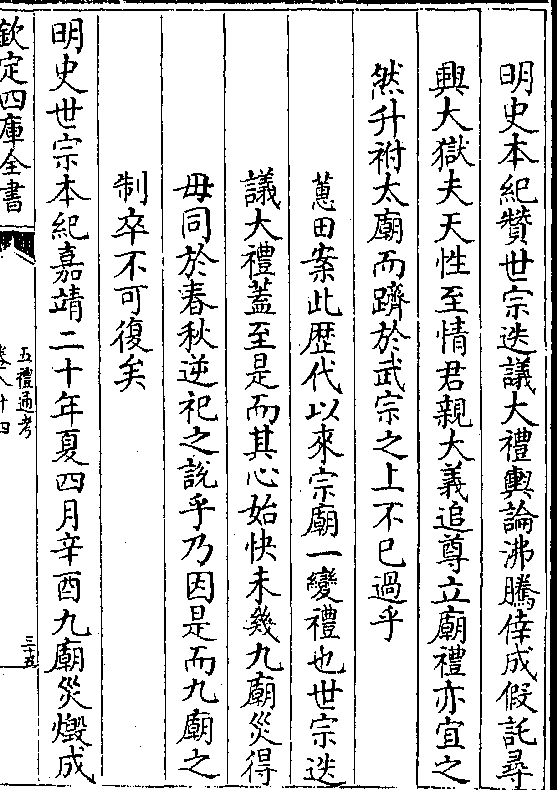 明史本紀贊世宗迭議大禮輿論沸騰倖成假託尋
興大獄夫天性至情君親大義追尊立廟禮亦宜之
然升祔太廟而躋於武宗之上不已過乎
蕙田案此歴代以來宗廟一變禮也世宗迭
議大禮蓋至是而其心始快未幾九廟災得
毋同於春秋逆祀之說乎乃因是而九廟之
制卒不可復矣
明史世宗本紀嘉靖二十年夏四月辛酉九廟災燬成
欽定四庫全書
五禮通考
卷八十四
三十五